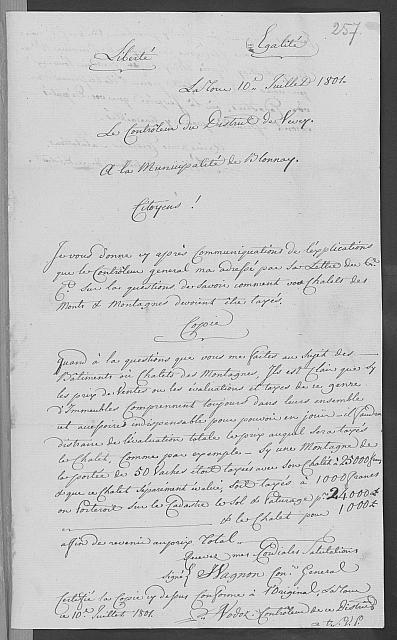 257
Liberté Egalité
La Tour 10e Juillet 1801.
Le Contrôleur du District de Vevey.
A la Municipalité de Blonnay.
Citoyens !
Je vous donne cy après Communiquations de l'explications
que le Contrôleur general m'a adressé par sa Lettre du
Sur les questions de savoir comment vos Chalets des
Monts & Montagnes devoient être taxés.
Copie
Quand à la questions que vous me faites au Sujet des
Bâtiments ou Chalets des Montagnes, Il est clair que Sy
les prix de Ventes ou les évaluations et taxes de ce genre
d'Immeubles Comprennent toujours dans leurs ensemble
cet accessoire indispensable pour pouvoir en jouir il faudra
distraire de l'évaluation totale le prix auquel sera taxés
le Chalet, Comme par exemple Sy une Montagne de
la portée de 50 Vaches étoit taxées avec son Chalet à 25000
& que ce Chalet Séparement évalué, soit taxés à 1000 francs
on Porteroit Sur le Cadastre le Sol de Paturage pr 24000
& le Chalet pour 1000
affin de revenir au prix Total
Recevez mes Cordiales Salutations
Signé Wagnon Con. General
Certifié la Copie cy dessus Conforme à l'Original, La Tour
ce 10e Juillet 1801.
Nodot Contrôleur de ce District